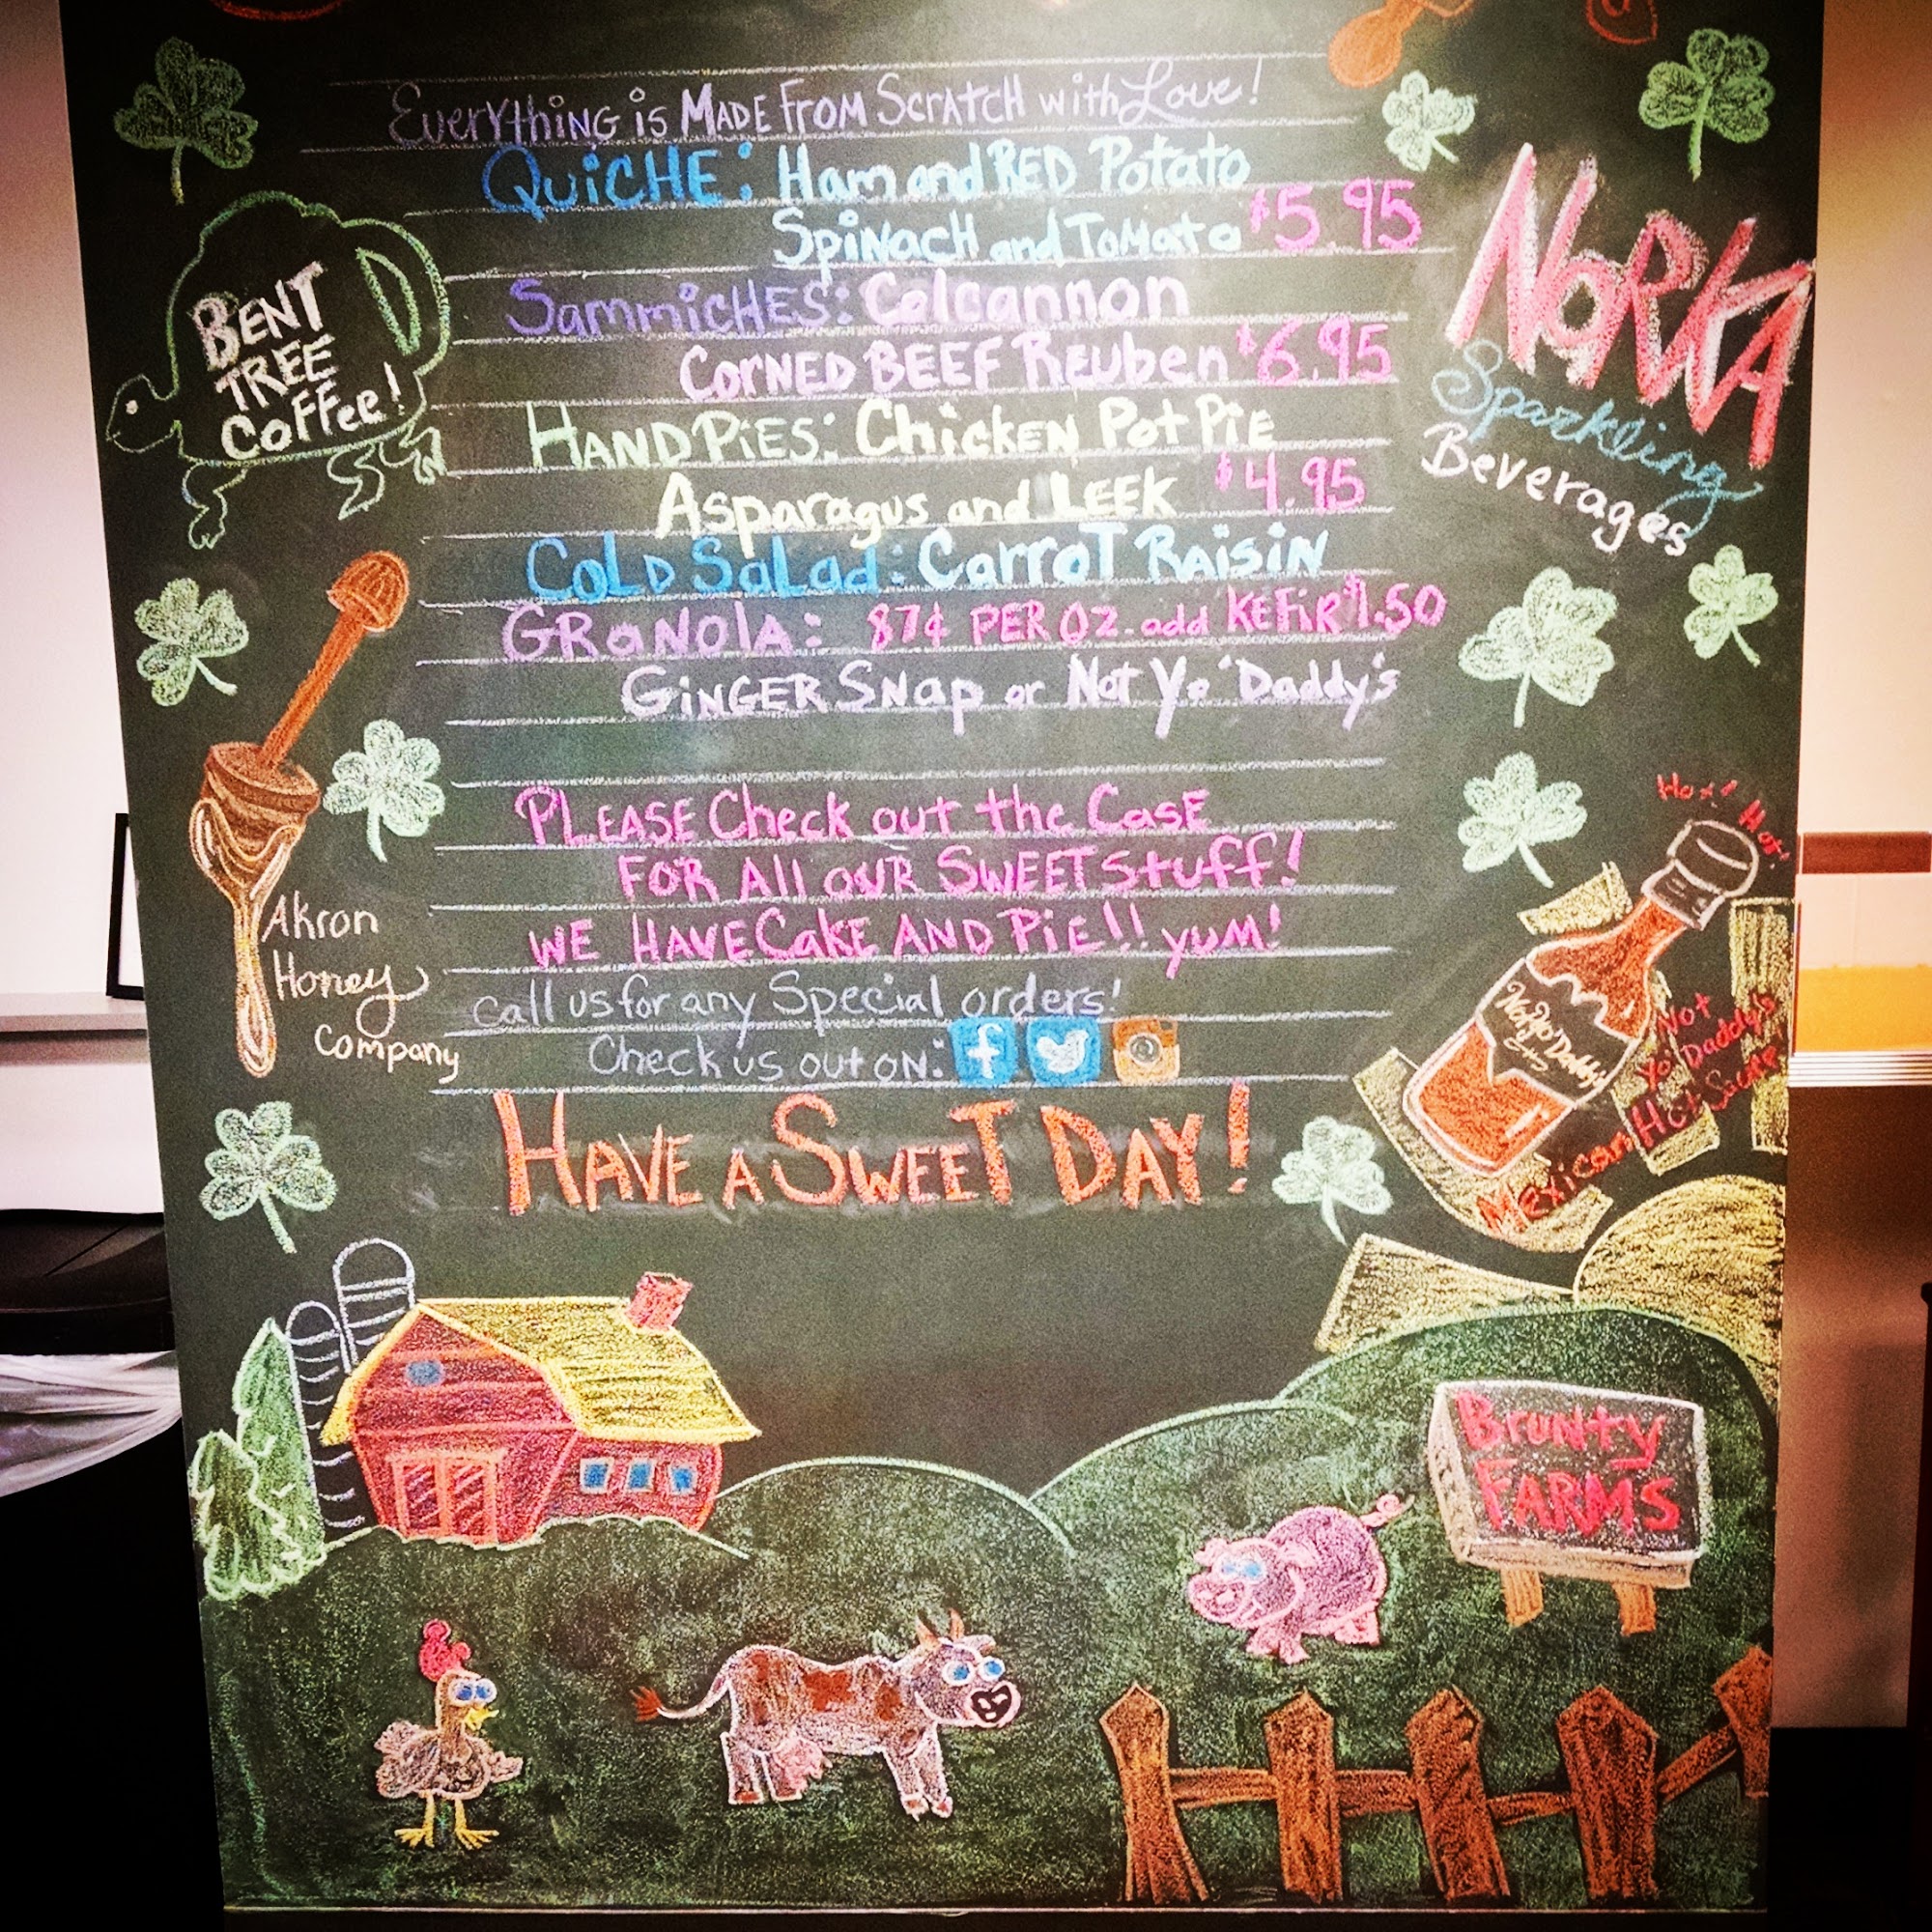 Everything is Made From Scratch with Love!
Quiche: Ham and Red Potato
Spinach and Tomato $5.95
Sammiches: Colcannon
Corned Beef Reuben $6.95
Hand Pies: Chicken Pot Pie
Asparagus and Leek $4.95
Cold Salad: Carrot Raisin
Granola: 87¢ per oz. add Kefir $1.50
Ginger Snap or Not Yo' Daddy's
Please Check out the Case
For All our Sweet Stuff!
We Have Cake and Pie!! yum!
Call us for any Special orders!
Check us out on:
Have a Sweet Day!
Bent
Tree
Coffee!
Norka
Sparkling
Beverages
Akron
Honey
Company
Hot! Hot!
Not Yo' Daddy's
Not
Yo' Daddy's
Mexican Hot Sauce
Brunty
Farms